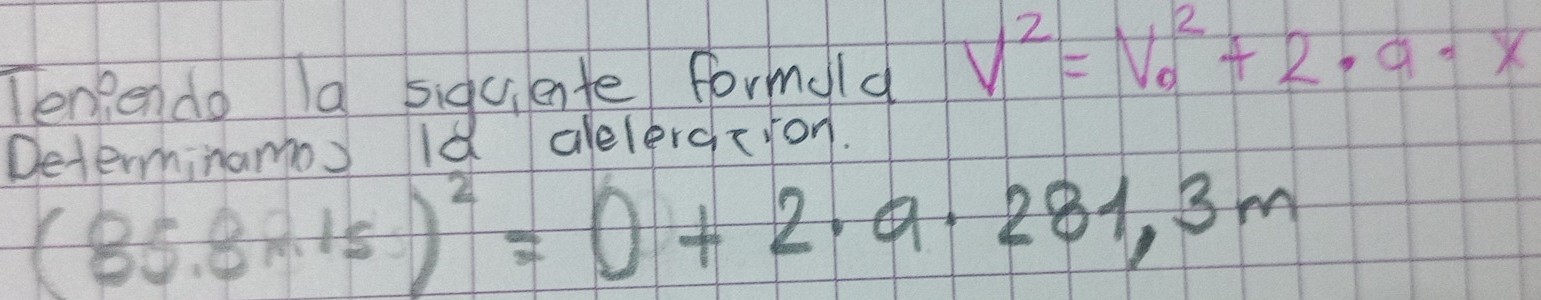 Teniendo la siguiente formula V² = V₀² + 2 · a · x
Determinamos la aleleracion.
(85.8 m/s)² = 0 + 2 · a · 281,3m